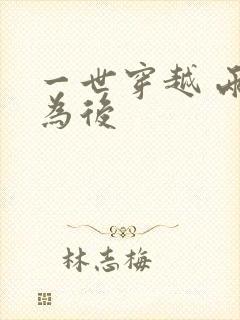 一世穿越
為後
林志梅